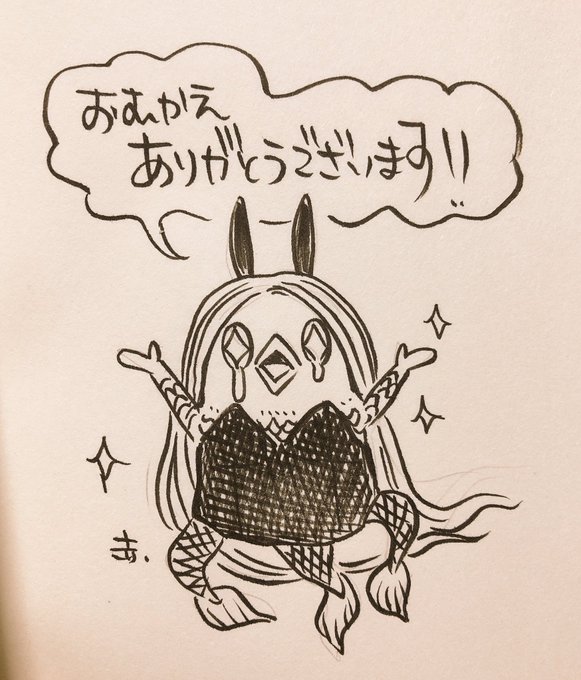 おむかえ
ありがとうございます!!
あ、